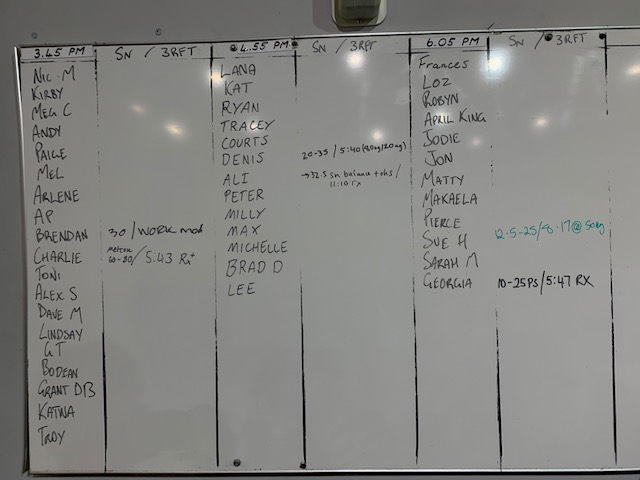 3.45 PM
SN / 3RFT
NIC M
KIRBY
MEG C
ANDY
PAIGE
MEL
ARLENE
AP
BRENDAN 30 / WORK mod
CHARLIE 60-80 / 5:43 Rx+
TONI
ALEX S
DAVE M
LINDSAY
GT
BODEAN
GRANT DB
KATINA
TROY
4.55 PM
SN / 3RFT
LANA
KAT
RYAN
TRACEY
COURTS
DENIS 20-35 / 5:40
ALI → 32.5 sn balance + ohs /
11:10 rx
PETER
MILLY
MAX
MICHELLE
BRAD D
LEE
6.05 PM
SN / 3RFT
Frances
LOZ
ROBYN
APRIL KING
JODIE
JON
MATTY
MAKAELA
PIERCE
SUE H 12.5-25/8.17@50kg
SARAH M
GEORGIA 10-25PS/5:47 RX